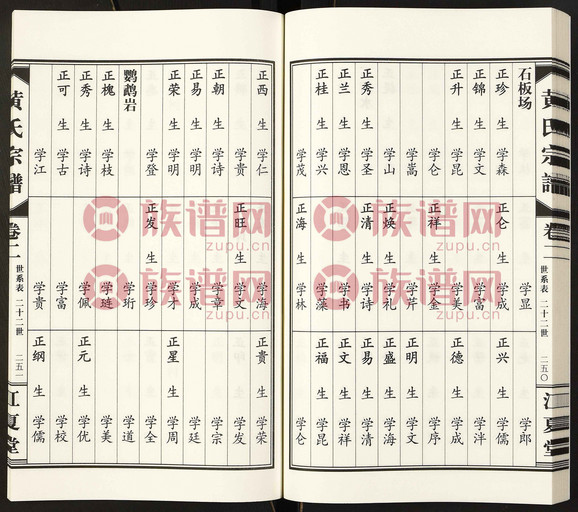 黄氏宗谱
卷二
世系表 二十二世 二五〇
江夏堂
石板场
正珍 生 学森
正锦 生 学文
正升 生 学昆
学仑
学嵩
学山
正秀 生 学圣
正兰 生 学恩
正桂 生 学兴
学茂
学显
正仑 生 学成
学富
学美
正祥 生 学金
学芹
正焕 生 学礼
正清 生 学诗
学书
学藻
正海 生 学林
学郎
正兴 生 学儒
学泮
正德 生 学成
学序
正明 生 学文
正盛 生 学海
正易 生 学清
正文 生 学祥
正福 生 学昆
学仑
正西 生 学仁
学贵
正朝 生 学诗
正易 生 学明
正荣 生 学明
学登
鹦鹉岩
正槐 生 学枝
正秀 生 学诗
正可 生 学古
学江
学海
正旺 生 学文
学章
学成
学才
正发 生 学珍
学珩
学琏
学佩
学富
学贵
正贵 生 学荣
学发
学宗
学廷
正星 生 学周
学全
学道
学美
正元 生 学优
学校
正纲 生 学儒
黄氏宗谱
卷二
世系表 二十二世 二五一
江夏堂
族谱网
zupu.cn
族谱网
zupu.cn
族谱网
zupu.cn
族谱网
zupu.cn